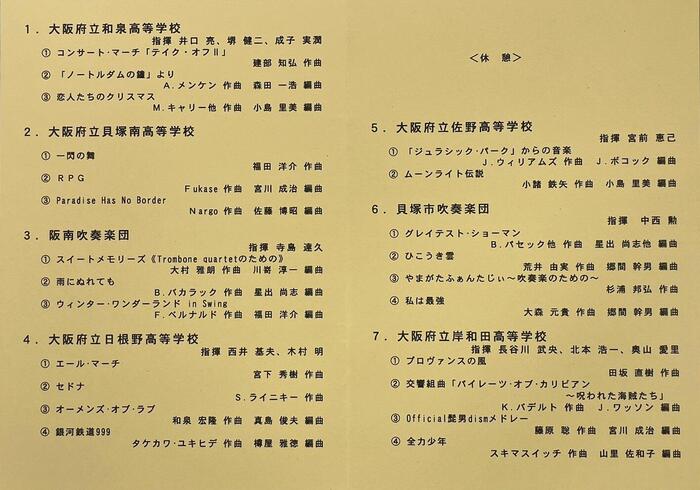 1. 大阪府立和泉高等学校
指揮 井口 亮、堺 健二、成子 実潤
① コンサート・マーチ「テイク・オフⅡ」
建部 知弘 作曲
② 「ノートルダムの鐘」より
A.メンケン 作曲 森田 一浩 編曲
③ 恋人たちのクリスマス
M.キャリー他 作曲 小島 里美 編曲
2. 大阪府立貝塚南高等学校
① 一閃の舞
福田 洋介 作曲
② RPG
Fukase 作曲 宮川 成治 編曲
③ Paradise Has No Border
Nargo 作曲 佐藤 博昭 編曲
3. 阪南吹奏楽団
指揮 寺島 達久
① スイートメモリーズ《Trombone quartetのための》
大村 雅朗 作曲 川嵜 淳一 編曲
② 雨にぬれても
B.バカラック 作曲 星出 尚志 編曲
③ ウィンター・ワンダーランド in Swing
F.ベルナルド 作曲 福田 洋介 編曲
4. 大阪府立日根野高等学校
指揮 西井 基夫、木村 明
① エール・マーチ
宮下 秀樹 作曲
② セドナ
S.ライニキー 作曲
③ オーメンズ・オブ・ラブ
和泉 宏隆 作曲 真島 俊夫 編曲
④ 銀河鉄道999
タケカワ・ユキヒデ 作曲 樽屋 雅徳 編曲
<休 憩>
5. 大阪府立佐野高等学校
指揮 宮前 恵己
① 「ジュラシック・パーク」からの音楽
J.ウィリアムズ 作曲 J.ボコック 編曲
② ムーンライト伝説
小諸 鉄矢 作曲 小島 里美 編曲
6. 貝塚市吹奏楽団
指揮 中西 勲
① グレイテスト・ショーマン
B.パセック他 作曲 星出 尚志他 編曲
② ひこうき雲
荒井 由実 作曲 郷間 幹男 編曲
③ やまがたふぁんたじぃ～吹奏楽のための～
杉浦 邦弘 作曲
④ 私は最強
大森 元貴 作曲 郷間 幹男 編曲
7. 大阪府立岸和田高等学校
指揮 長谷川 武央、北本 浩一、奥山 愛里
① プロヴァンスの風
田坂 直樹 作曲
② 交響組曲「パイレーツ・オブ・カリビアン
～呪われた海賊たち」
K.バデルト 作曲 J.ワッソン 編曲
③ Official髭男dismメドレー
藤原 聡 作曲 宮川 成治 編曲
④ 全力少年
スキマスイッチ 作曲 山里 佐和子 編曲